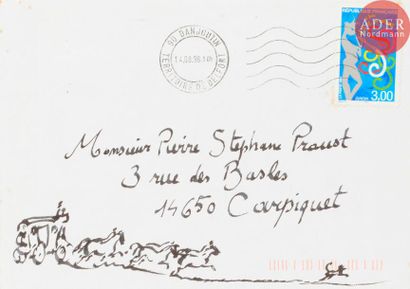 ADER
Nordmann
90 DANJOUTIN
TERRITOIRE DE BELFORT
RÉPUBLIQUE FRANÇAISE
3,00
Monsieur Pierre Stephane Proust
3 rue des Basles
14650
Carpiquet